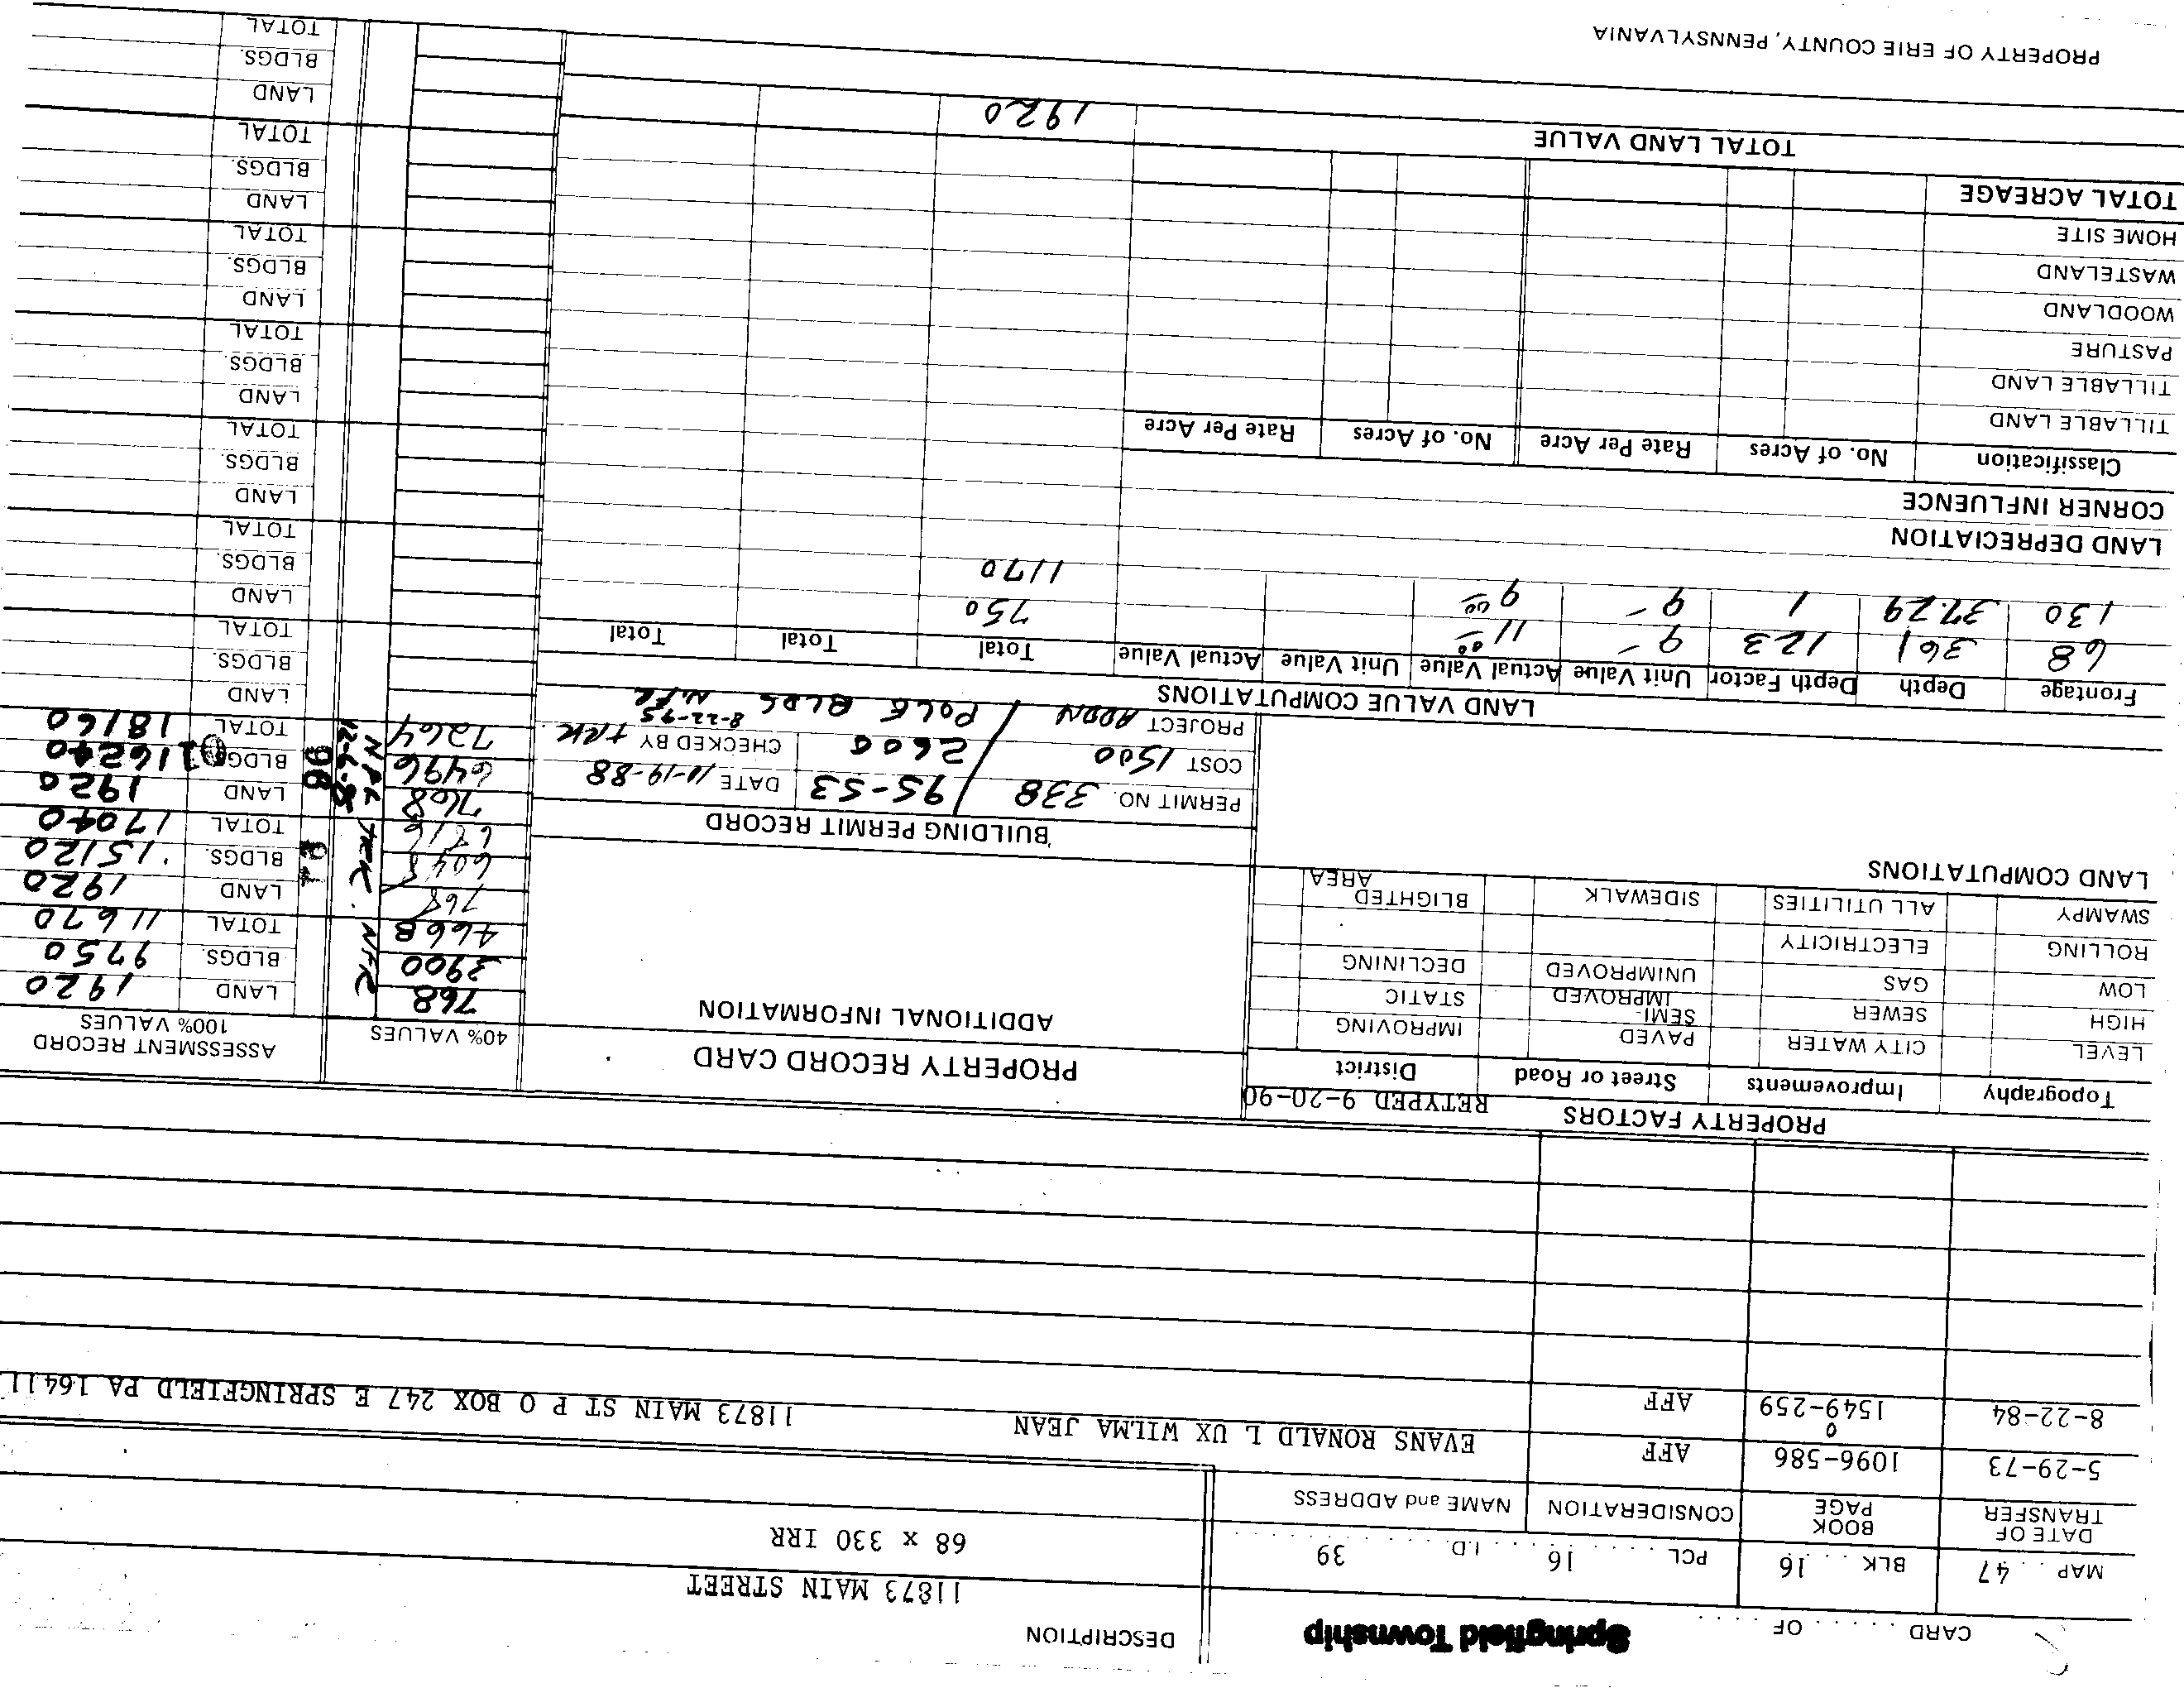 CARD . . . . . . OF . . . . . Springfield Township
DESCRIPTION
MAP . . . 47 BLK . . . 16 PCL . . . . . 16 . . . . I.D. . . . . . 39
11873 MAIN STREET
68 x 330 IRR
DATE OF TRANSFER BOOK PAGE CONSIDERATION NAME and ADDRESS
5-29-73 1096-586 AFF EVANS RONALD L UX WILMA JEAN 11873 MAIN ST P O BOX 247 E SPRINGFIELD PA 16411
0
8-22-84 1549-259 AFF
PROPERTY FACTORS RETYPED 9-20-90
Topography Improvements Street or Road District
LEVEL CITY WATER PAVED IMPROVING
HIGH SEWER SEMI-IMPROVED STATIC
LOW GAS UNIMPROVED DECLINING
ROLLING ELECTRICITY
SWAMPY ALL UTILITIES SIDEWALK BLIGHTED AREA
LAND COMPUTATIONS
PROPERTY RECORD CARD
ADDITIONAL INFORMATION
BUILDING PERMIT RECORD
PERMIT NO. 338 / 95-53 DATE 10-19-88
COST 1500 / 2600 CHECKED BY TRK
PROJECT ADDN / POLE BLDG 8-22-95 NFR
LAND VALUE COMPUTATIONS
Frontage Depth Depth Factor Unit Value Actual Value Unit Value Actual Value Total Total Total
68 361 123 9 - 11 00 750
130 37.29 1 9 - 9 00 1170
LAND DEPRECIATION
CORNER INFLUENCE
Classification No. of Acres Rate Per Acre No. of Acres Rate Per Acre
TILLABLE LAND
TILLABLE LAND
PASTURE
WOODLAND
WASTELAND
HOME SITE
TOTAL ACREAGE
TOTAL LAND VALUE 1920
PROPERTY OF ERIE COUNTY, PENNSYLVANIA
40% VALUES ASSESSMENT RECORD 100% VALUES
768 LAND 1920
3900 BLDGS. 9750
4668 TOTAL 11670
768 LAND 1920
6048 BLDGS. 15120
6816 TOTAL 17040
768 LAND 1920
6496 96 BLDGS. 16240
7264 TOTAL 18160
NFR TRK. NFR
12-6-95
LAND
BLDGS.
TOTAL
LAND
BLDGS.
TOTAL
LAND
BLDGS.
TOTAL
LAND
BLDGS.
TOTAL
LAND
BLDGS.
TOTAL
LAND
BLDGS.
TOTAL
LAND
BLDGS.
TOTAL